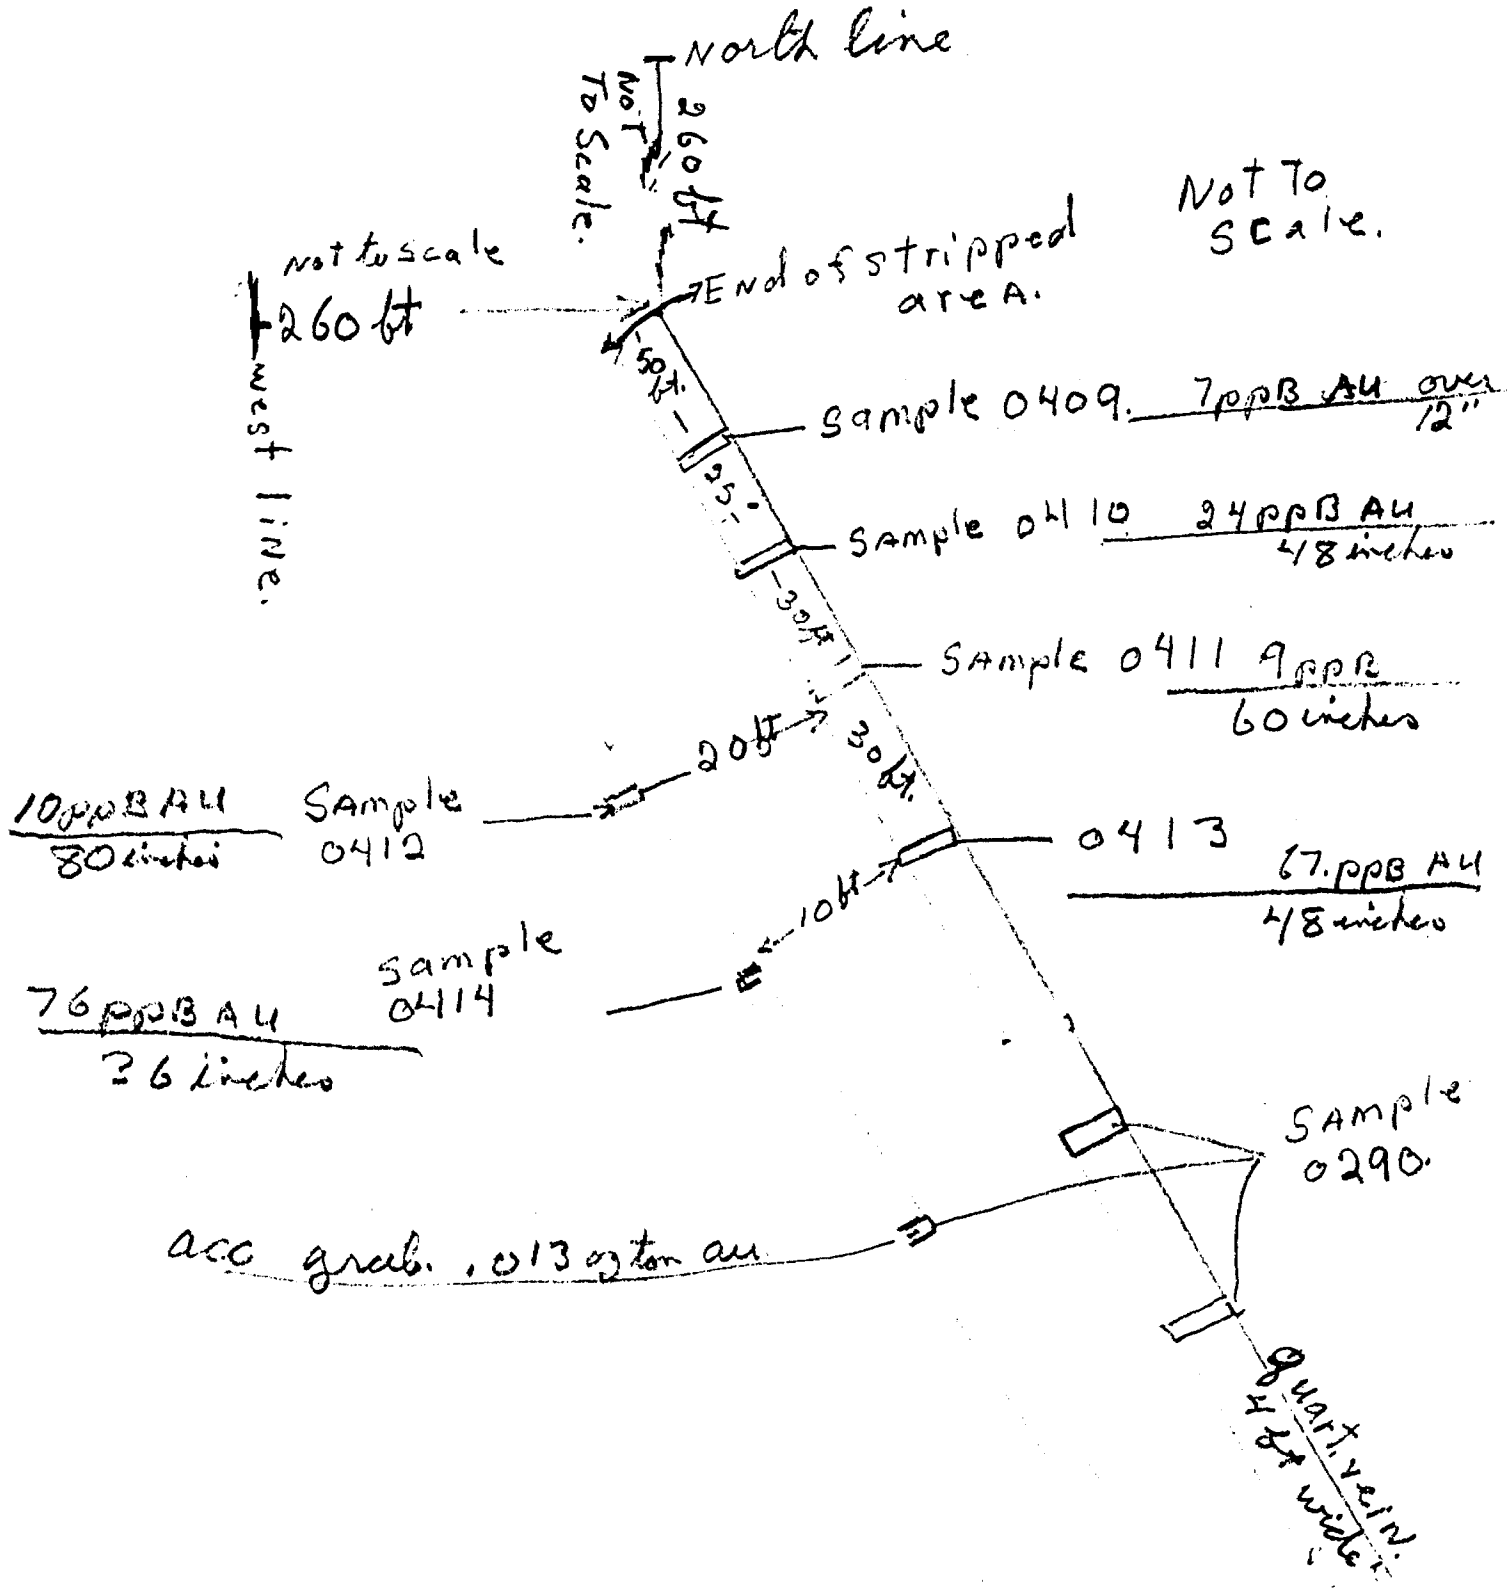 North line
260 ft
NOT
TO Scale.
Not To
Scale.
Not to scale
260 ft
west line.
End of stripped
area.
50
ft.
Sample 0409. 7ppB AU over
12"
25'
SAmple 0410 24ppB AU
48 inches
30ft
SAmple 0411 9ppB
60 inches
20ft
30ft.
10ppB AU
80 inches
SAmple
0412
0413
67.ppB AU
48 inches
10ft
Sample
0414
76ppB AU
36 inches
SAmple
0290.
acc grab. .013 oz ton au
quart. vein.
4 ft wide